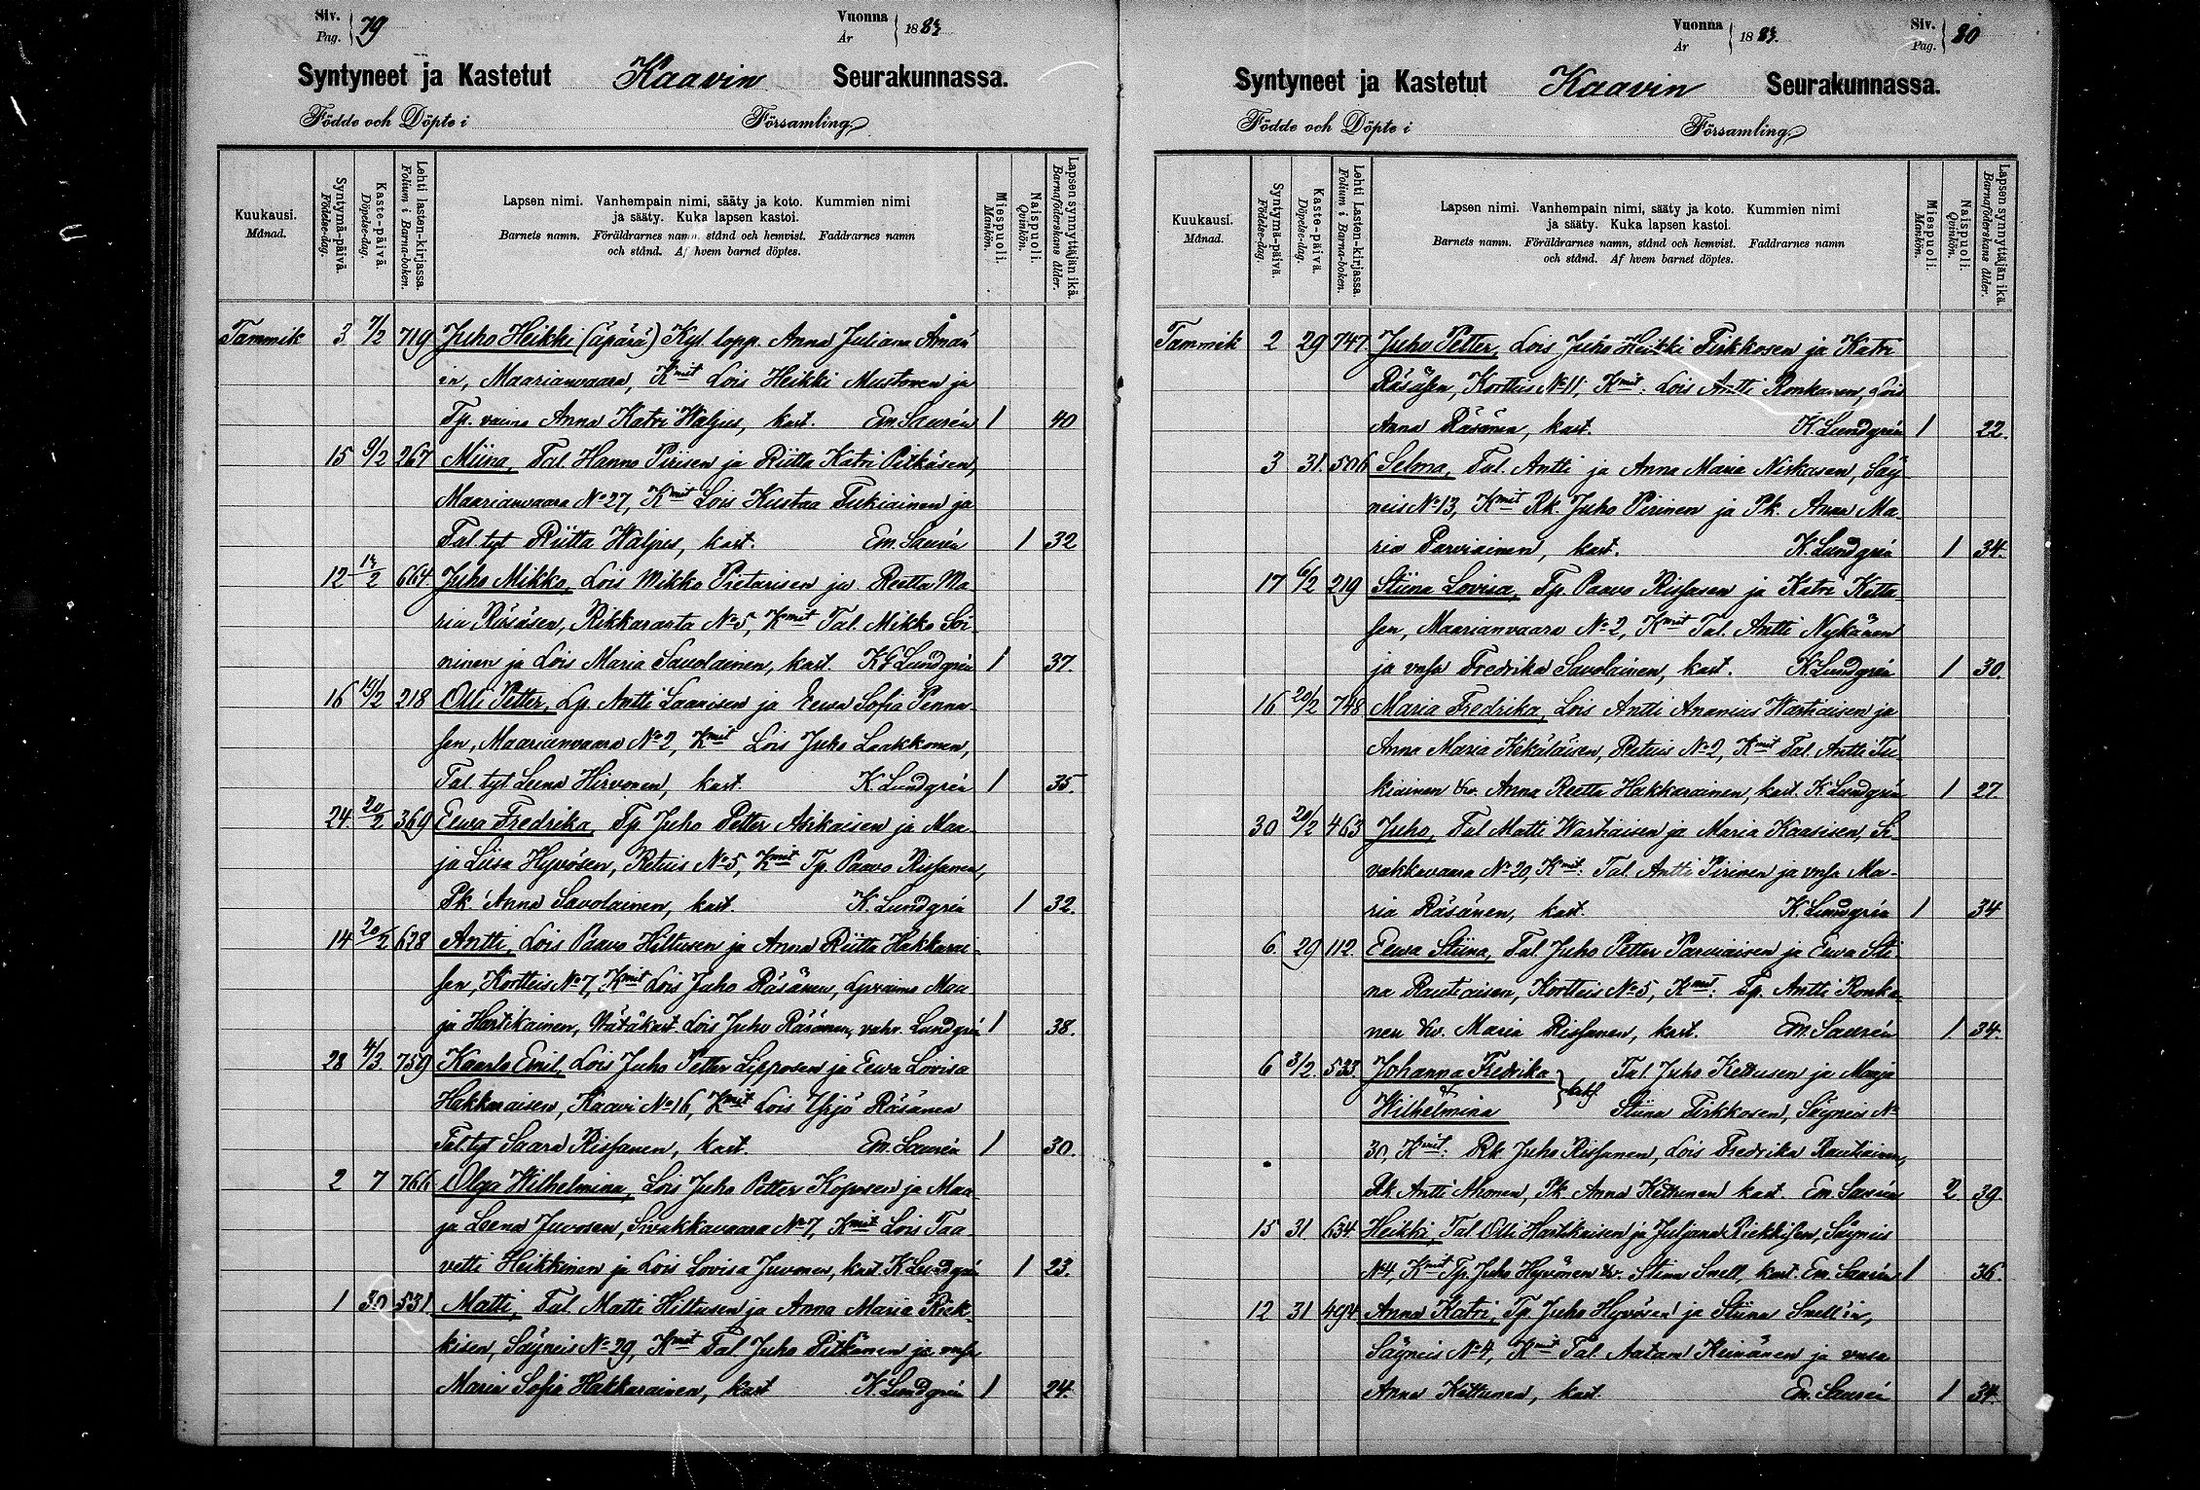 Siv. Pag. 79
Vuonna År 1883
Syntyneet ja Kastetut Kaavin Seurakunnassa.
Födde och Döpte i Församling
Kuukausi. Månad.
Syntymä-päivä. Födelse-dag.
Kaste-päivä. Döpelse-dag.
Lehti lasten-kirjassa. Folium i Barna-boken.
Lapsen nimi. Vanhempain nimi, sääty ja koto. Kummien nimi
ja sääty. Kuka lapsen kastoi.
Barnets namn. Föräldrarnes namn, stånd och hemvist. Faddrarnes namn
och stånd. Af hvem barnet döptes.
Miespuoli. Mankön.
Naispuoli. Qvinkön.
Lapsen synnyttäjän ikä. Barnaföderskans ålder.
Tammik 3 7/2 719 Juho Heikki (äpärä) Kyl. lopp. Anna Juliana Ånän
in, Maarianvaara, Kmit Lois Heikki Mustonen ja
Tp. vaimo Anna Katri Waljus, kast. Em. Saurén 1 40
15 9/2 267 Miina, Tal. Hanno Piirisen ja Riitta Katri Pitkäsen,
Maarianvaara No 27, Kmit Lois Kustaa Tukiainen ja
Tal. tyt Riitta Waljus, kast. Em. Saurén 1 32
12 13/2 664 Juho Mikko, Lois Mikko Pietarisen ja Reetta Ma-
ria Räsäsen, Rikkaranta No 5, Kmit Tal. Mikko Soi-
ninen ja Lois Maria Savolainen, kast. KG Lundgrén 1 37.
16 14/2 218 Olli Petter, Lp. Antti Laarisen ja Eewa Sofia Penna-
sen, Maarianvaara No 2, Kmit Lois Juho Laakkonen,
Tal. tyt Leena Hirvonen, kast. K. Lundgrén 1 35.
24. 20/2 369 Eewa Fredrika, Tp Juho Petter Asikaisen ja Maa-
ja Liisa Hyvösen, Retuis No 5, Kmit Tp. Paavo Rissanen,
Pk. Anna Savolainen, kast. K. Lundgrén 1 32.
14 20/2 628 Antti, Lois Paavo Hiltusen ja Anna Riitta Hakkarai-
sen, Kortteis No 7, Kmit Lois Juho Räsänen, Lp vaimo Maa-
ja Hartikainen, Hätäkast. Lois Juho Räsänen, vahv. Lundgrén 1 38.
28 4/3. 759 Kaarlo Emil, Lois Juho Petter Lipposen ja Eewa Lovisa
Hakkaraisen, Kaavi No 16, Kmit Lois Yrjö Räsänen
Tal. tyt Saara Rissanen, kast. Em. Saurén 1 30.
2 7 766 Olga Wilhelmina, Lois Juho Petter Koposen ja Maa-
ja Leena Juvosen, Sivakkavaara No 7, Kmit Lois Taa-
vetti Heikkinen ja Lois Lovisa Juvonen, kast. K Lundgrén 1 23.
1 30 531 Matti, Tal Matti Hiltusen ja Anna Maria Riek-
kisen, Säyneis No 29, Kmit Tal Juho Pitkänen ja vmsa
Maria Sofia Hakkarainen, kast K. Lundgrén 1 24.
Vuonna År 1883.
Siv. Pag. 80
Syntyneet ja Kastetut Kaavin Seurakunnassa.
Födde och Döpte i Församling
Kuukausi. Månad.
Syntymä-päivä. Födelse-dag.
Kaste-päivä. Döpelse-dag.
Lehti Lasten-kirjassa. Folium i Barna-boken.
Lapsen nimi. Vanhempain nimi, sääty ja koto. Kummien nimi
ja sääty. Kuka lapsen kastoi.
Barnets namn. Föräldrarnes namn, stånd och hemvist. Faddrarnes namn
och stånd. Af hvem barnet döptes.
Miespuoli. Mankön.
Naispuoli. Qvinkön.
Lapsen synnyttäjän ikä. Barnaföderskans ålder.
Tammik 2 29 747 Juho Petter, Lois Juho Heikki Tirkkosen ja Katri
Räsäsen, Kortteis No 11, Kmit: Lois Antti Ronkanen, Lois
Anna Räsänen, kast. K. Lundgrén 1 22.
3 31. 506 Selma, Tal. Antti ja Anna Maria Niskasen, Säy-
neis No 13, Kmit Rk. Juho Pirinen ja Pk. Anna Ma-
ria Parviainen, kast. K. Lundgrén 1 34.
17 6/2 219 Stiina Lovisa, Tp. Paavo Rissasen ja Katri Ketta-
sen, Maarianvaara No 2, Kmit Tal. Antti Nykänen
ja vmsa Fredrika Savolainen, kast. K. Lundgrén 1 30.
16 20/2 748 Maria Fredrika, Lois Antti Ananius Wartiaisen ja
Anna Maria Kekäläisen, Retuis No 2, Kmit Tal. Antti Tu-
kiainen &v. Anna Reetta Hakkarainen, kast. K. Lundgrén 1 27
30 20/2 463 Juho, Tal Matti Wartiaisen ja Maria Kaasisen, Si-
vakkavaara No 20, Kmit: Tal. Antti Pirinen ja vmsa Ma-
ria Räsänen, kast. K. Lundgrén 1 34
6. 29 112. Eewa Stiina, Tal. Juho Petter Parviaisen ja Eewa Sti-
na Rautiaisen, Kortteis No 5, Kmit: Tp. Antti Ronka-
nen &v. Maria Rissanen, kast. Em. Saurén 1. 34.
6 3/2. 533. Johanna Fredrika & Wilhelmina } Tal. Juho Kettusen ja Maija
Stiina Tirkkosen, Säyneis No
30, Kmit: Rk Juho Rissanen, Lois Fredrika Rautiainen,
Rk Antti Ahonen, Pk. Anna Kettunen kast. Em. Saurén 2. 39.
15 31 634. Heikki, Tal. Olli Hartikaisen ja Juljana Riekkisen, Säyneis
No 4, Kmit Tp. Juho Hyvönen &v. Stiina Snell, kast. Em. Saurén 1 36.
12 31 494 Anna Katri, Tp. Juho Hyvösen ja Stiina Snell'in,
Säyneis No 4, Kmit Tal. Aatam Keinänen ja vmsa
Anna Kettunen, kast. Em. Saurén 1 34.